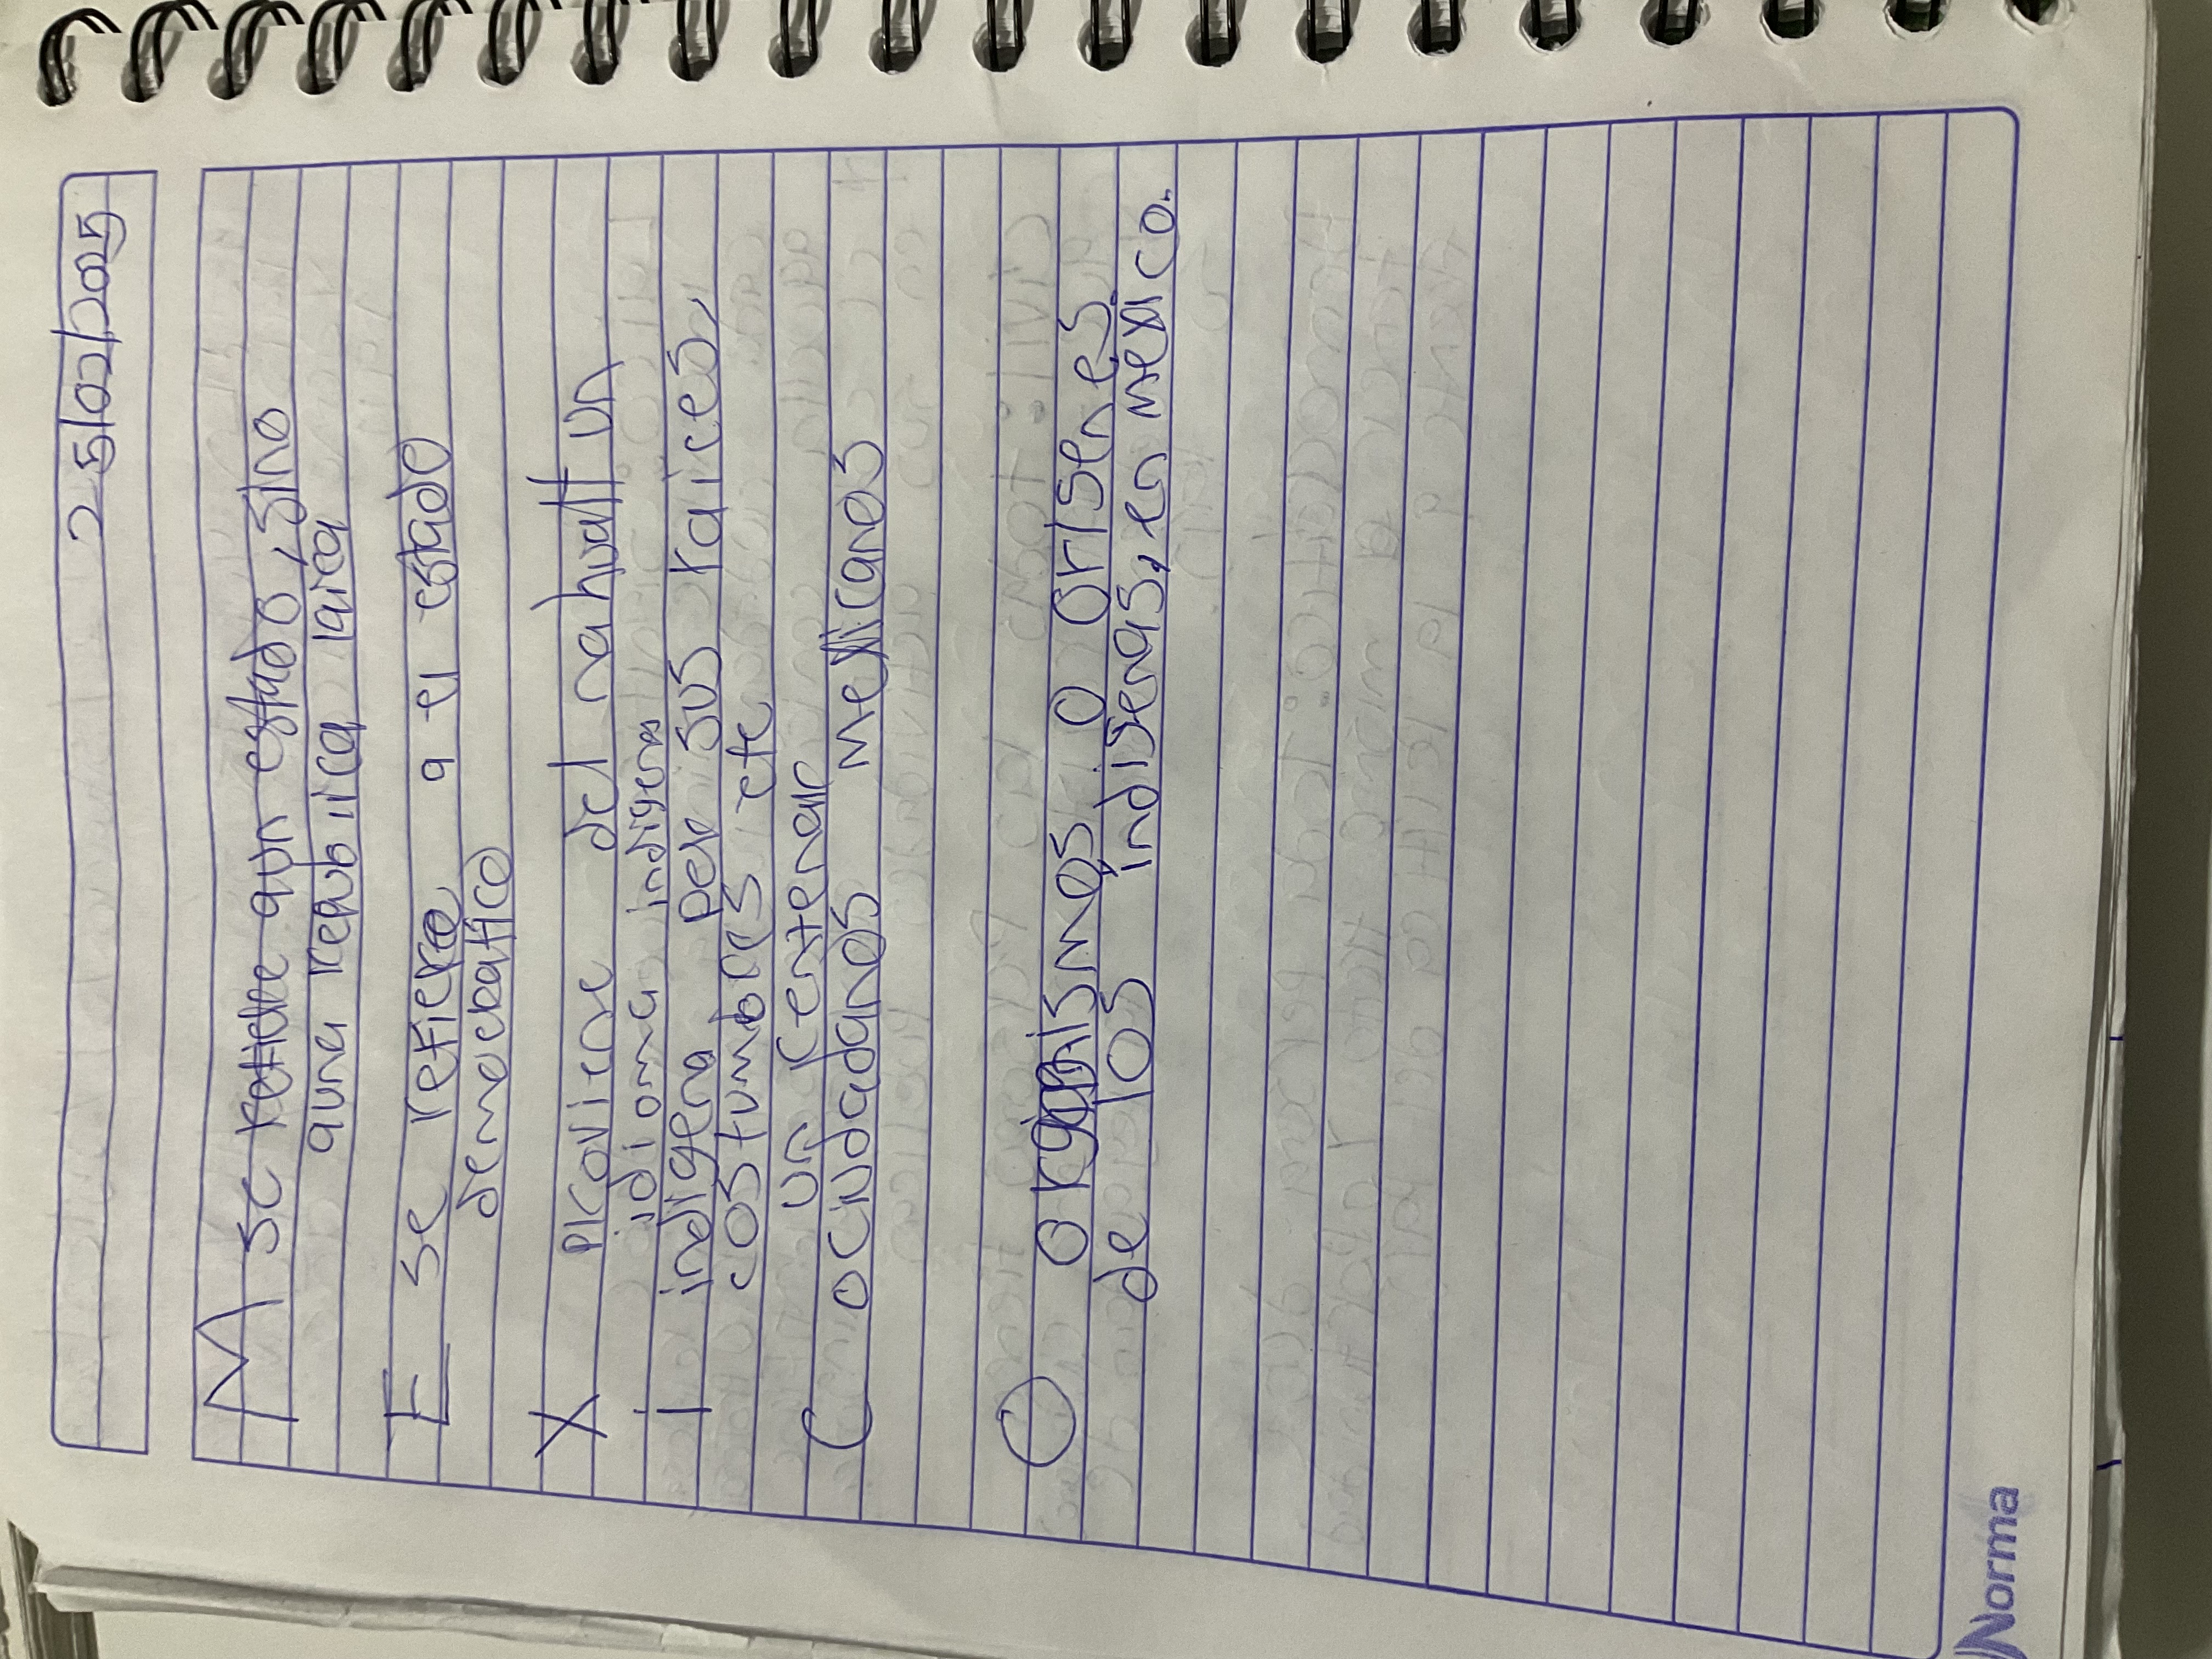 25/02/2025
M se refiere aun estado, sino
auna republica laica
E se refiere a el estado
democratico
X Proviene del nahuatl un
idioma indigena
I indigena perd sus raices,
costumbres etc
un centenar
C ociudadanos mexicanos
O organismos o origenes
de los indigenas, en mexico.
Norma